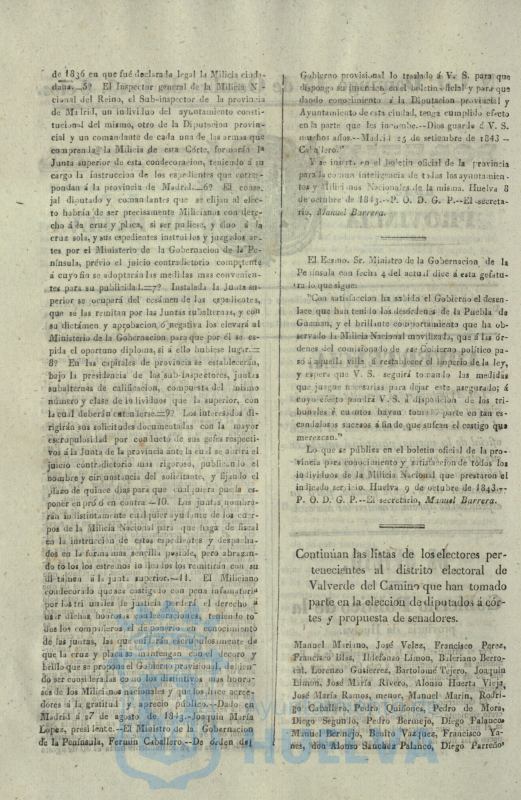 de 1836 en que fué declarada legal la Milicia ciuda-
dana.=5? El Inspector general de la Milicia Na-
cional del Reino, el Sub-inspector de la provincia
de Madrid, un individuo del ayuntamiento consti-
tucional del mismo, otro de la Diputacion provin-
cial y un comandante de cada una de las armas que
comprenda la Milicia de esta Córte, formarán la
Junta superior de esta condecoracion, teniendo á su
cargo la instruccion de los espedientes que corres-
pondan á la provincia de Madrid.=6? El conse-
jal diputado y comandantes que se elijan al efec-
to habrán de ser precisamente Milicianos con dere-
cho á la cruz y placa, si ser pudiese, y sino á la
cruz sola, y sus espedientes instruidos y juzgados an-
tes por el Ministerio de la Gobernacion de la Pe-
nínsula, prévio el juicio contradictorio competente
á cuyo fin se adoptarán las medidas mas convenien-
tes para su publicidad.=7? Instalada la Junta su-
perior se ocupará del ecsámen de los espedientes,
que se las remitan por las Juntas subalternas, y con
su dictámen y aprobacion ó negativa los elevará al
Ministerio de la Gobernacion para que por él se es-
pida el oportuno diploma, si á ello hubiese lugar.=
8? En las capitales de provincia se establecerán,
bajo la presidencia de los sub-inspectores, juntas
subalternas de calificacion, compuestas del mismo
número y clase de individuos que la superior, con
la cual deberán entenderse.=9? Los interesados di-
rigirán sus solicitudes documentadas con la mayor
escrupulosidad por conducto de sus gefes respecti-
vos á la Junta de la provincia ante la cual se abrirá el
juicio contradictorio mas rigoroso, publicando el
nombre y circunstancia del solicitante, y fijando el
plazo de quince dias para que cualquiera pueda es-
poner en pró ó en contra=10. Las juntas nombra-
rán indistintamente cualquier ayudante de los cuer-
pos de la Milicia Nacional para que haga de fiscal
en la instruccion de estos espedientes y despacha-
dos en la forma mas sencilla posible, pero abrazan-
do todos los estremos indicados los remitirán con su
dictámen á la junta superior.=11. El Miliciano
condecorado que sea castigado con pena infamatoria
por los tribunales de justicia perderá el derecho á
usar dichas honrosas condecoraciones, teniendo to-
dos los compañeros el de ponerlo en conocimiento
de las juntas, las que cuidarán escrupulosamente de
que la cruz y placa se mantengan con el decoro y
brillo que se propone el Gobierno provisional, debien-
do ser consideradas como los distintivos mas honro-
sos de los Milicianos nacionales y que los hace acree-
dores á la gratitud y aprecio público.--Dado en
Madrid á 27 de agosto de 1843.-Joaquin Maria
Lopez, presidente.--El Ministro de la Gobernacion
de la Península, Fermin Caballero.--De órden del
Gobierno provisional lo traslado á V. S. para que
disponga su insercion en el boletin oficial y para que
dando conocimiento á la Diputacion provincial y
Ayuntamiento de esta ciudad, tenga cumplido efecto
en la parte que les incumbe.--Dios guarde á V. S.
muchos años.--Madrid 25 de setiembre de 1843 -
Caballero."
Y se insert. en el boletin oficial de la provincia
para la comun inteligencia de todos los ayuntamien-
tos y Milicianos Nacionales de la misma. Huelva 8
de octubre de 1843.--P. O. D. G. P.--El secreta-
rio, Manuel Barrera.
El Escmo. Sr. Ministro de la Gobernacion de la
Península con fecha 4 del actual dice á esta gefatu-
ra lo que sigue:
"Con satisfaccion ha sabido el Gobierno el desen-
lace que han tenido los desórdenes de la Puebla de
Guzman, y el brillante comportamiento que ha ob-
servado la Milicia Nacional movilizada, que á las ór-
denes del comisionado de ese Gobierno político pa-
só á aquella villa á restablecer el imperio de la ley,
y espera que V. S. seguirá tomando las medidas
que juzgue necesarias para dejar este asegurado; á
cuyo efecto pondrá V. S. á disposicion de los tri-
bunales á cuantos hayan tomado parte en tan es-
candalosos sucesos á fin de que sufran el castigo que
merezcan."
Lo que se publica en el boletin oficial de la pro-
vincia para conocimiento y satisfaccion de todos los
individuos de la Milicia Nacional que prestaron el
indicado servicio. Huelva 9 de octubre de 1843.--
P. O. D. G. P.--El secretario, Manuel Barrera.
Continúan las listas de los electores per-
tenecientes al distrito electoral de
Valverde del Camino que han tomado
parte en la eleccion de diputados á cór-
tes y propuesta de senadores.
Manuel Mariano, José Velez, Francisco Perez,
Francisco Blas, Ildefonso Limon, Baleriano Berro-
cal, Lorenzo Gutierrez, Bartolomé Tejero, Joaquin
Limon, José María Rivero, Alonso Huerta Vieja,
José María Ramos, menor, Manuel Marin, Rodri-
go Caballero, Pedro Quiñones, Pedro de Mora,
Diego Segundo, Pedro Bermejo, Diego Palanco,
Manuel Bermejo, Benito Vazquez, Francisco Ya-
nes, don Alonso Sanchez Palanco, Diego Parreño,
HUELVA